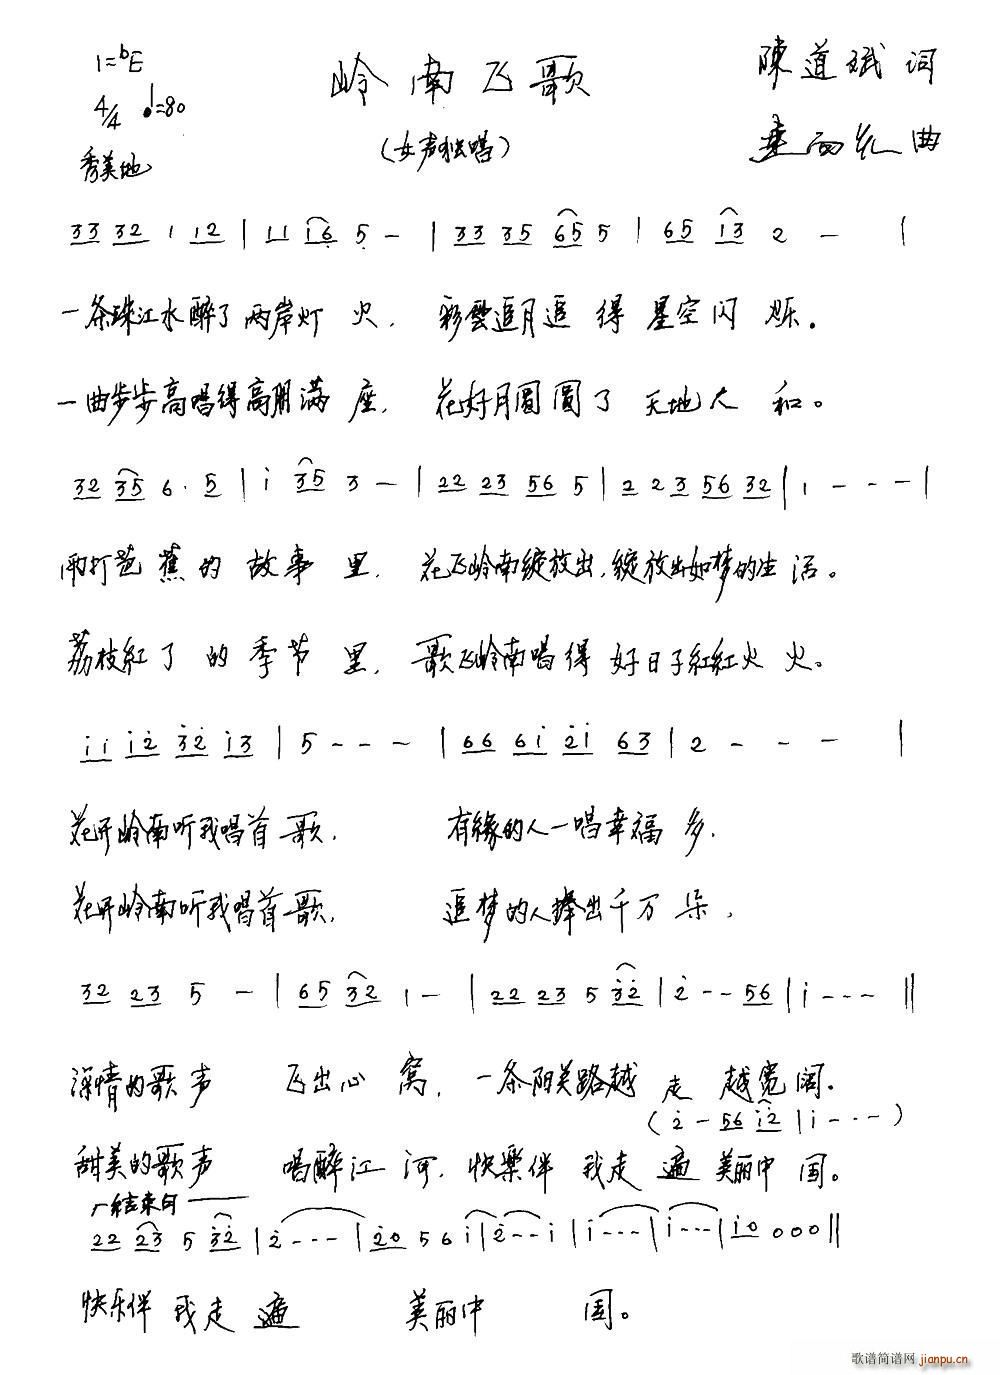 1=bE
岭南飞歌
陳道斌 词
4/4 ♩=80
(女声独唱)
曲
秀美地
33 32 1 12 | 11 16 5 - | 33 35 65 5 | 65 13 2 - |
一条珠江水醉了两岸灯火, 彩雲追月追得星空闪烁.
一曲步步高唱得高朋满座, 花好月圓圓了天地人和。
32 35 6. 5 | i 35 3 - | 22 23 56 5 | 2 2 3 56 32 | 1 - - - |
雨打芭蕉的故事里, 花飞岭南绽放出,绽放出如梦的生活。
荔枝紅了的季节里, 歌飞岭南唱得好日子紅紅火火。
ii i2 32 i3 | 5 - - - | 66 6i 2i 63 | 2 - - - |
花开岭南听我唱首歌, 有缘的人一唱幸福多,
花开岭南听我唱首歌, 追梦的人捧出千万朵,
32 23 5 - | 65 32 1 - | 22 23 5 32 | 2 - - 56 | i - - - ||
深情的歌声 飞出心窝, 一条阳关路越走越宽阔.
(2 - 56 i2 | i - - - )
甜美的歌声 唱醉江河, 快樂伴我走遍美丽中国。
结束句
22 23 5 32 | 2 - - - | 20 5 6 i | 2 - - i | i - - - | i - - - | i0 0 0 0 ||
快乐伴我走遍 美丽中国。
歌谱简谱网 jianpu.cn